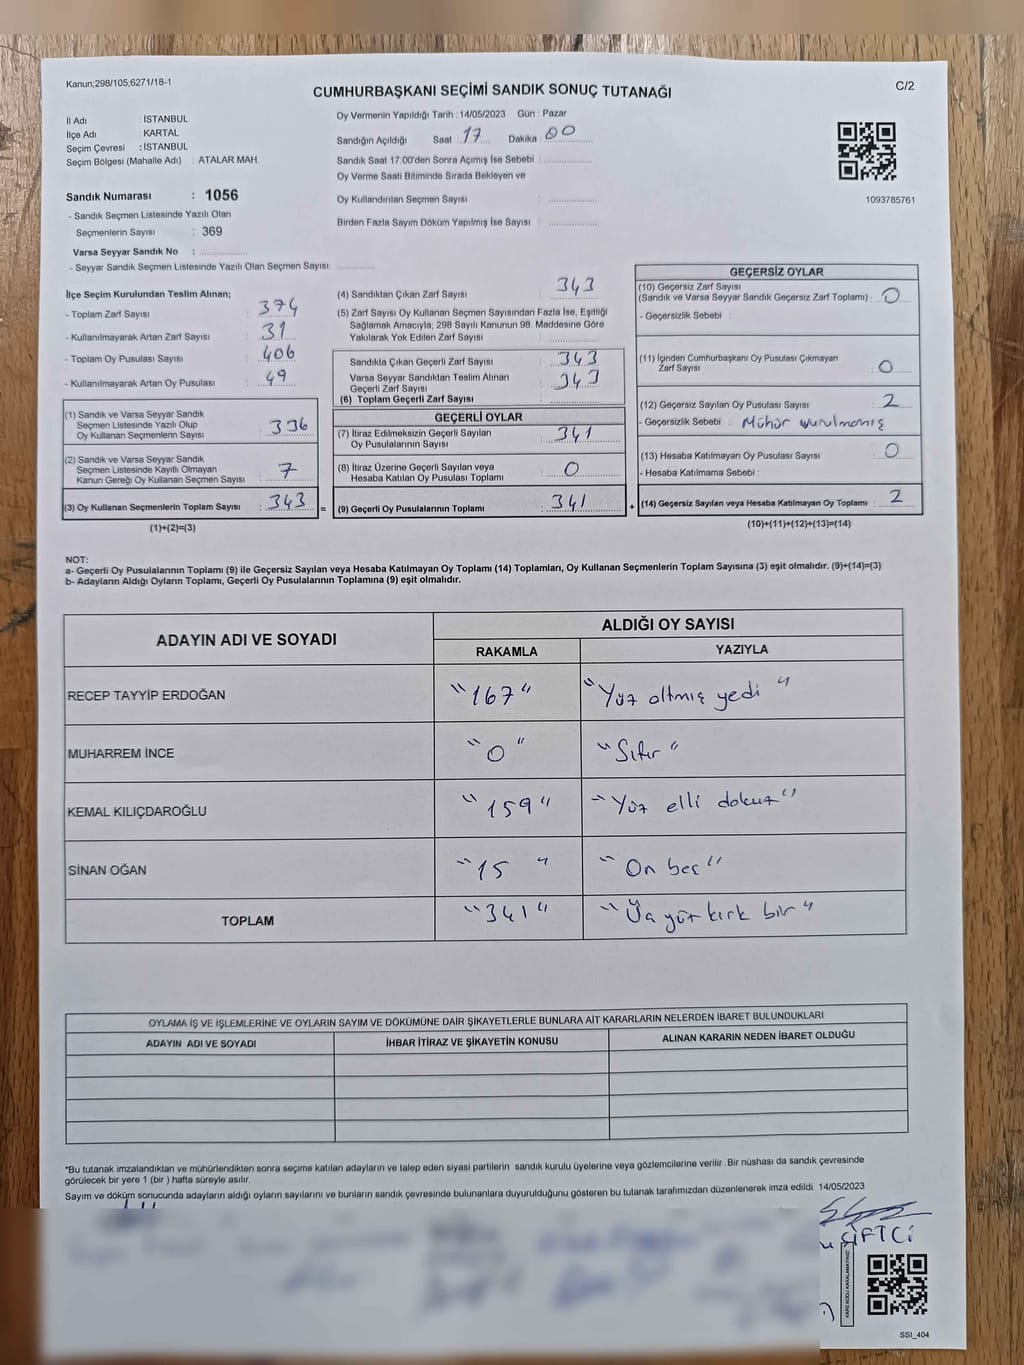 Kanun;298/105;6271/18-1
CUMHURBAŞKANI SEÇİMİ SANDIK SONUÇ TUTANAĞI
C/2
İl Adı : İSTANBUL
İlçe Adı : KARTAL
Seçim Çevresi : İSTANBUL
Seçim Bölgesi (Mahalle Adı) : ATALAR MAH.
Sandık Numarası : 1056
- Sandık Seçmen Listesinde Yazılı Olan
Seçmenlerin Sayısı : 369
Varsa Seyyar Sandık No :
- Seyyar Sandık Seçmen Listesinde Yazılı Olan Seçmen Sayısı:
Oy Vermenin Yapıldığı Tarih : 14/05/2023 Gün : Pazar
Sandığın Açıldığı Saat : 17 Dakika : 00
Sandık Saat 17.00'den Sonra Açımış İse Sebebi :
Oy Verme Saati Bitiminde Sırada Bekleyen ve
Oy Kullandırılan Seçmen Sayısı :
Birden Fazla Sayım Döküm Yapılmış İse Sayısı :
1093785761
İlçe Seçim Kurulundan Teslim Alınan;
- Toplam Zarf Sayısı : 374
- Kullanılmayarak Artan Zarf Sayısı : 31
- Toplam Oy Pusulası Sayısı : 406
- Kullanılmayarak Artan Oy Pusulası : 49
(1) Sandık ve Varsa Seyyar Sandık
Seçmen Listesinde Yazılı Olup
Oy Kullanan Seçmenlerin Sayısı : 336
(2) Sandık ve Varsa Seyyar Sandık
Seçmen Listesinde Kayıtlı Olmayan
Kanun Gereği Oy Kullanan Seçmen Sayısı : 7
(3) Oy Kullanan Seçmenlerin Toplam Sayısı : 343 =
(1)+(2)=(3)
(4) Sandıktan Çıkan Zarf Sayısı : 343
(5) Zarf Sayısı Oy Kullanan Seçmen Sayısından Fazla İse, Eşitliği
Sağlamak Amacıyla; 298 Sayılı Kanunun 98. Maddesine Göre
Yakılarak Yok Edilen Zarf Sayısı :
Sandıkta Çıkan Geçerli Zarf Sayısı : 343
Varsa Seyyar Sandıktan Teslim Alınan
Geçerli Zarf Sayısı : 343
(6) Toplam Geçerli Zarf Sayısı :
GEÇERLİ OYLAR
(7) İtiraz Edilmeksizin Geçerli Sayılan
Oy Pusulalarının Sayısı : 341
(8) İtiraz Üzerine Geçerli Sayılan veya
Hesaba Katılan Oy Pusulası Toplamı : 0
(9) Geçerli Oy Pusulalarının Toplamı : 341 +
GEÇERSİZ OYLAR
(10) Geçersiz Zarf Sayısı
(Sandık ve Varsa Seyyar Sandık Geçersiz Zarf Toplamı) : 0
- Geçersizlik Sebebi :
(11) İçinden Cumhurbaşkanı Oy Pusulası Çıkmayan
Zarf Sayısı : 0
(12) Geçersiz Sayılan Oy Pusulası Sayısı : 2
- Geçersizlik Sebebi : Mühür vurulmamış
(13) Hesaba Katılmayan Oy Pusulası Sayısı : 0
- Hesaba Katılmama Sebebi :
(14) Geçersiz Sayılan veya Hesaba Katılmayan Oy Toplamı : 2
(10)+(11)+(12)+(13)=(14)
NOT:
a- Geçerli Oy Pusulalarının Toplamı (9) ile Geçersiz Sayılan veya Hesaba Katılmayan Oy Toplamı (14) Toplamları, Oy Kullanan Seçmenlerin Toplam Sayısına (3) eşit olmalıdır. (9)+(14)=(3)
b- Adayların Aldığı Oyların Toplamı, Geçerli Oy Pusulalarının Toplamına (9) eşit olmalıdır.
ADAYIN ADI VE SOYADI
ALDIĞI OY SAYISI
RAKAMLA YAZIYLA
RECEP TAYYİP ERDOĞAN "167" "Yüz altmış yedi"
MUHARREM İNCE "0" "Sıfır"
KEMAL KILIÇDAROĞLU "159" "Yüz elli dokuz"
SİNAN OĞAN "15" "On beş"
TOPLAM "341" "Üç yüz kırk bir"
OYLAMA İŞ VE İŞLEMLERİNE VE OYLARIN SAYIM VE DÖKÜMÜNE DAİR ŞİKAYETLERLE BUNLARA AİT KARARLARIN NELERDEN İBARET BULUNDUKLARI
ADAYIN ADI VE SOYADI İHBAR İTİRAZ VE ŞİKAYETİN KONUSU ALINAN KARARIN NEDEN İBARET OLDUĞU
*Bu tutanak imzalandıktan ve mühürlendikten sonra seçime katılan adayların ve talep eden siyasi partilerin sandık kurulu üyelerine veya gözlemcilerine verilir .Bir nüshası da sandık çevresinde
görülecek bir yere 1 (bir ) hafta süreyle asılır.
Sayım ve döküm sonucunda adayların aldığı oyların sayılarını ve bunların sandık çevresinde bulunanlara duyurulduğunu gösteren bu tutanak tarafımızdan düzenlenerek imza edildi. 14/05/2023
ÇİFTCİ
KARE KODU KARALAMAYINIZ!
SSI_404